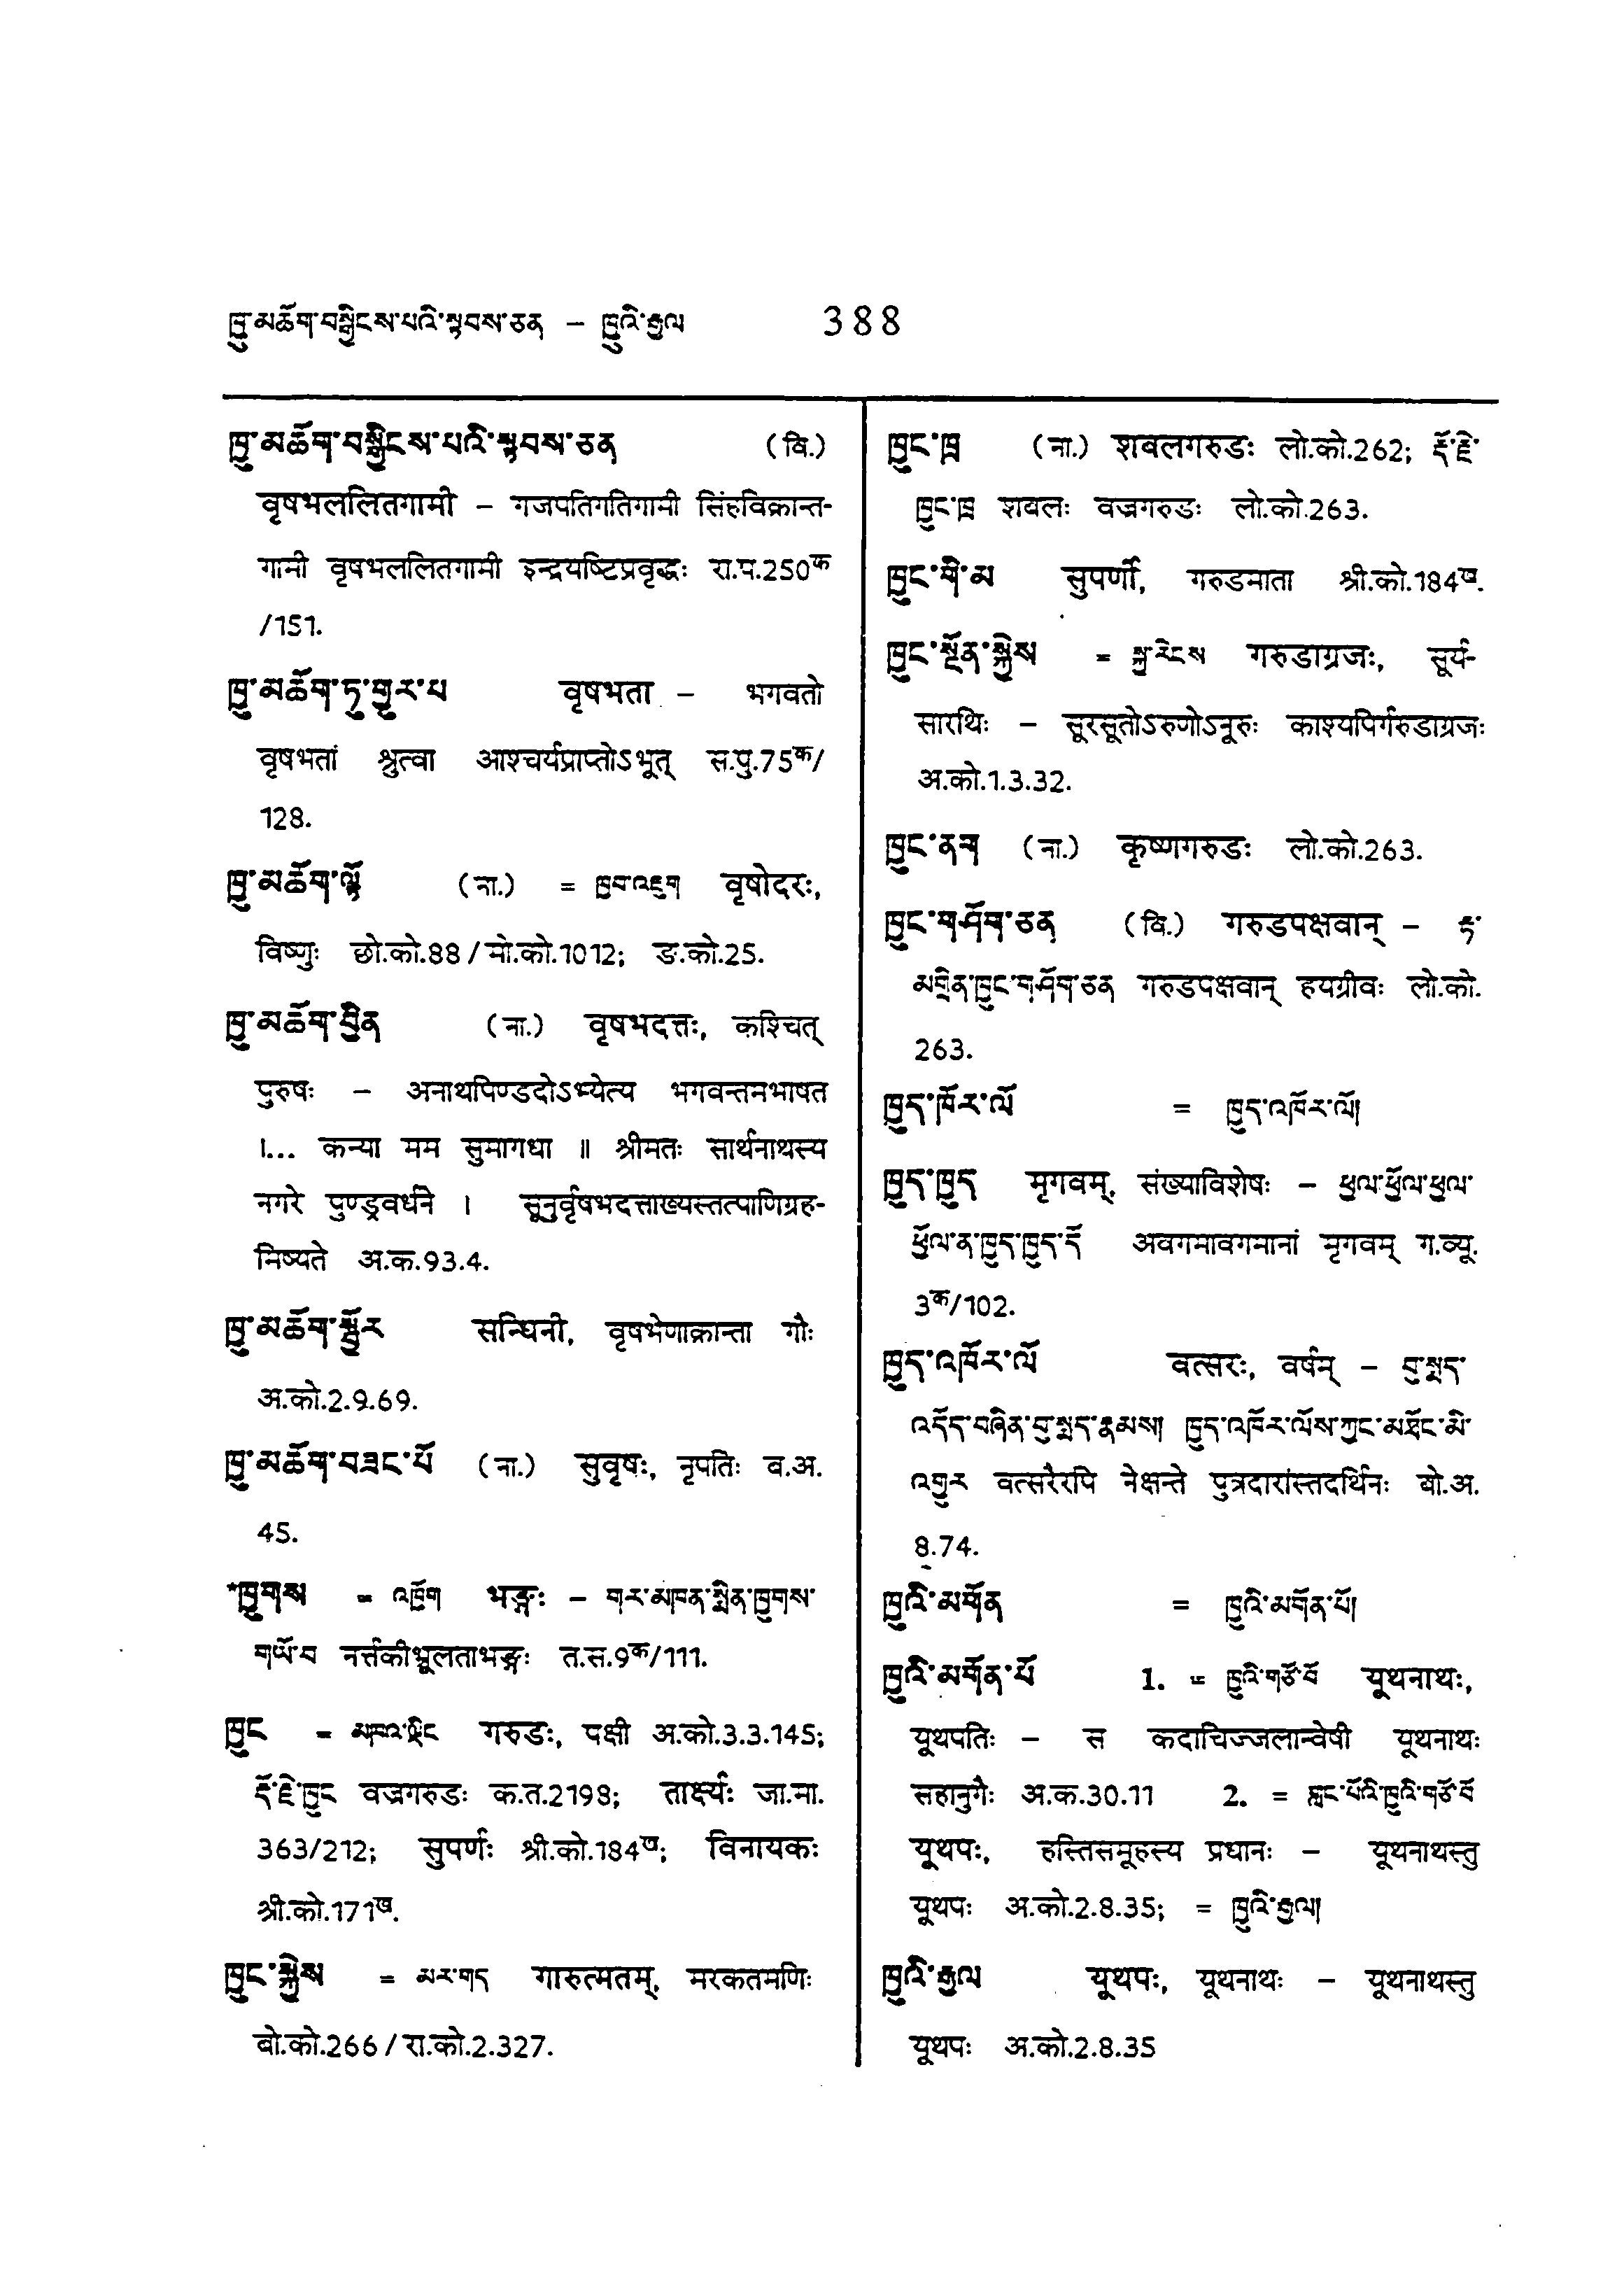 ཁྱུ་མཆོག་བསྒྱིངས་པའི་སྟབས་ཅན – ཁྱུའི་རྒྱལ 388
ཁྱུ་མཆོག་བསྒྱིངས་པའི་སྟབས་ཅན (वि.)
वृषभललितगामी – गजपतिगतिगामी सिंहविक्रान्त-
गामी वृषभललितगामी इन्द्रयष्टिप्रवृद्धः रा.प.250क
/151.
ཁྱུ་མཆོག་ཏུ་གྱུར་པ वृषभता – भगवतो
वृषभतां श्रुत्वा आश्चर्यप्राप्तोऽभूत् स.पु.75क/
128.
ཁྱུ་མཆོག་ལྟོ (ना.) = ཁྱབ་འཇུག वृषोदरः,
विष्णुः छो.को.88/मो.को.1012; ङ.को.25.
ཁྱུ་མཆོག་བྱིན (ना.) वृषभदत्तः, कश्चित्
पुरुषः – अनाथपिण्डदोऽभ्येत्य भगवन्तमभाषत
।... कन्या मम सुमागधा ॥ श्रीमतः सार्थनाथस्य
नगरे पुण्ड्रवर्धने । सूनुर्वृषभदत्ताख्यस्तत्पाणिग्रह-
मिष्यते अ.क.93.4.
ཁྱུ་མཆོག་སྦྱོར सन्धिनी, वृषभेणाक्रान्ता गौः
अ.को.2.9.69.
ཁྱུ་མཆོག་བཟང་པོ (ना.) सुवृषः, नृपतिः ब.अ.
45.
*ཁྱུགས = འཁྱོག भङ्गः – གར་མཁན་སྨིན་ཁྱུགས་
གཡོ་བ नर्त्तकीभ्रूलताभङ्गः त.स.9क/111.
ཁྱུང = མཁའ་ལྡིང गरुडः, पक्षी अ.को.3.3.145;
རྡོ་རྗེ་ཁྱུང वज्रगरुडः क.त.2198; तार्क्ष्यः जा.मा.
363/212; सुपर्णः श्री.को.184ख; विनायकः
श्री.को.171ख.
ཁྱུང་སྐྱེས = མར་གད गारुत्मतम्, मरकतमणिः
बो.को.266/रा.को.2.327.
ཁྱུང་ཁྲ (ना.) शबलगरुडः लो.को.262; རྡོ་རྗེ་
ཁྱུང་ཁྲ शबलः वज्रगरुडः लो.को.263.
ཁྱུང་གི་མ सुपर्णी, गरुडमाता श्री.को.184ख.
ཁྱུང་སྔོན་སྐྱེས = སྐྱ་རེངས गरुडाग्रजः, सूर्य-
सारथिः – सूरसूतोऽरुणोऽनूरुः काश्यपिर्गरुडाग्रजः
अ.को.1.3.32.
ཁྱུང་ནག (ना.) कृष्णगरुडः लो.को.263.
ཁྱུང་གཤོག་ཅན (वि.) गरुडपक्षवान् – རྟ་
མགྲིན་ཁྱུང་གཤོག་ཅན गरुडपक्षवान् हयग्रीवः लो.को.
263.
ཁྱུད་ཁོར་ལོ = ཁྱུད་འཁོར་ལོ།
ཁྱུད་ཁྱུད मृगवम्, संख्याविशेषः – ཕྱུལ་ཕྱོལ་ཕྱུལ་
ཕྱོལ་ན་ཁྱུད་ཁྱུད་དོ अवगमावगमानां मृगवम् ग.व्यू.
3क/102.
ཁྱུད་འཁོར་ལོ वत्सरः, वर्षम् – བུ་སྨད་
འདོད་བཞིན་བུ་སྨད་རྣམས། ཁྱུད་འཁོར་ལོས་ཀྱང་མཐོང་མི་
འགྱུར वत्सरैरपि नेक्षन्ते पुत्रदारांस्तदर्थिनः बो.अ.
8.74.
ཁྱུའི་མགོན = ཁྱུའི་མགོན་པོ།
ཁྱུའི་མགོན་པོ 1. = ཁྱུའི་གཙོ་བོ यूथनाथः,
यूथपतिः – स कदाचिज्जलान्वेषी यूथनाथः
सहानुगैः अ.क.30.11 2. = གླང་པོའི་ཁྱུའི་གཙོ་བོ
यूथपः, हस्तिसमूहस्य प्रधानः – यूथनाथस्तु
यूथपः अ.को.2.8.35; = ཁྱུའི་རྒྱལ།
ཁྱུའི་རྒྱལ यूथपः, यूथनाथः – यूथनाथस्तु
यूथपः अ.को.2.8.35